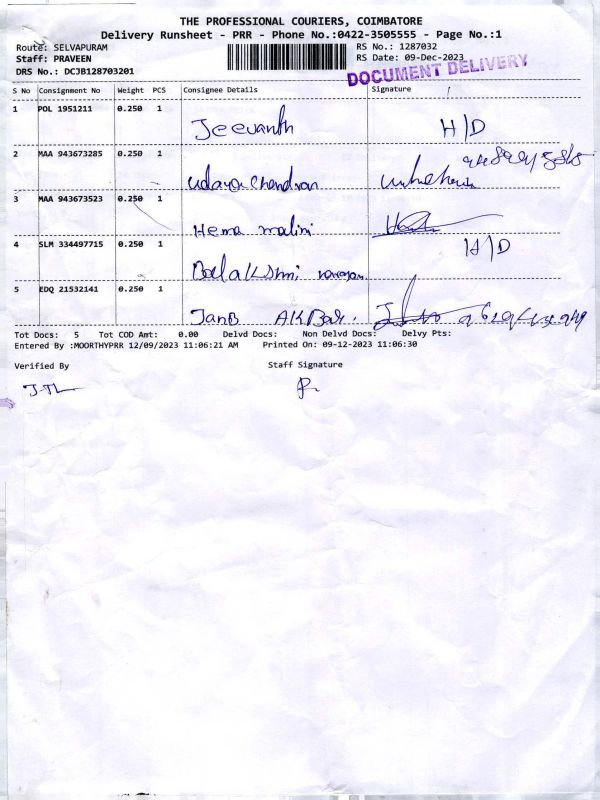 THE PROFESSIONAL COURIERS, COIMBATORE
Delivery Runsheet - PRR - Phone No.:0422-3505555 - Page No.:1
Route: SELVAPURAM RS No.: 1287032
Staff: PRAVEEN RS Date: 09-Dec-2023
DRS No.: DCJB128703201 DOCUMENT DELIVERY
S No Consignment No Weight PCS Consignee Details Signature
1 POL 1951211 0.250 1
Jeevanth H/D
2 MAA 943673285 0.250 1
Udaya Chandran
3 MAA 943673523 0.250 1
Hema malini
4 SLM 334497715 0.250 1 H/D
5 EDQ 21532141 0.250 1
Tot Docs: 5 Tot COD Amt: 0.00 Delvd Docs: Non Delvd Docs: Delvy Pts:
Entered By :MOORTHYPRR 12/09/2023 11:06:21 AM Printed On: 09-12-2023 11:06:30
Verified By Staff Signature